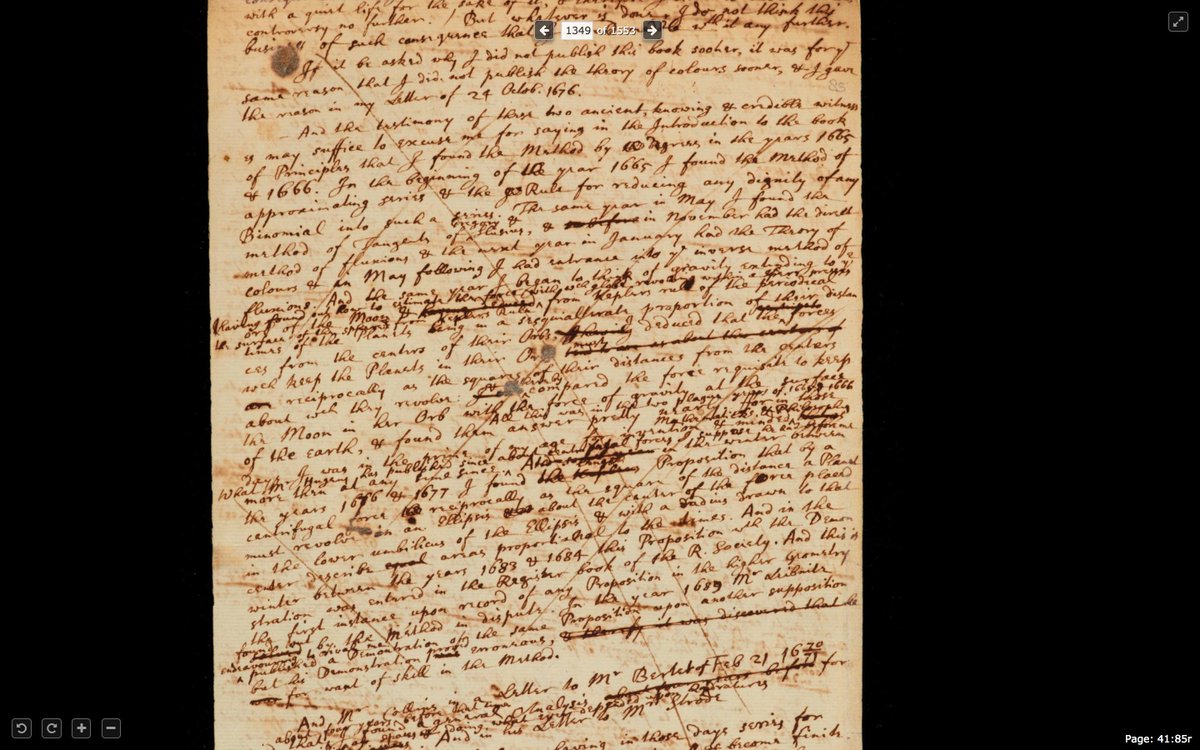 with a quiet life for the sake of
controversy no further. But whatever is done, I do not think this
1349 of 1553
business of such consequence that with it any further.
If it be asked why I did not publish this book sooner, it was for ye
same reason that I did not publish the theory of colours sooner, & I gave
the reason in my Letter of 24 Octob. 1676.
85
And the testimony of these two ancient, knowing & credible witness
es may suffice to excuse me for saying in the Introduction to the book
of Principles that I found the Method by degrees in the years 1665
& 1666. In the beginning of the year 1665 I found the Method of
approximating series & the Rule for reducing any dignity of any
Binomial into such a series. The same year in May I found the
method of Tangents of Gregory & Slusius, & in November had the direct
method of fluxions & the next year in January had the Theory of
colours & in May following I had entrance into ye inverse method of
fluxions. And the same year I began to think of gravity extending to ye
orb of the Moon & (having found out how to estimate the force with wch globe revolving within a sphere presses
the surface of the sphere) from Keplers rule of the periodical
times of the Planets being in a sesquialterate proportion of their distan
ces from the centers of their Orbs, I deduced that the forces
wch keep the Planets in their Orbs must
be reciprocally as the squares of their distances from the centers
about wch they revolve: & thereby compared the force requisite to keep
the Moon in her Orb with the force of gravity at the surface
of the earth, & found them answer pretty nearly. All this was in the two plague years of 1665 & 1666
for in those days I was in the prime of my age for invention & minded Mathematicks & Philosophy
more then at any time since. What Mr Hugens has published since about centrifugal forces I suppose he had before me.
At length in the winter between
the years 1676 & 1677 I found the Proposition that by a
centrifugal force reciprocally as the square of the distance a Planet
must revolve in an Ellipsis about the center of the force placed
in the lower umbilicus of the Ellipsis & with a radius drawn to that
center describe areas proportional to the times. And in the
winter between the years 1683 & 1684 this Proposition wth the Demon
stration was entered in the Register book of the R. Society. And this is
the first instance upon record of any Proposition in the higher Geometry
found out by the Method in dispute. In the year 1689 Mr Leibnitz
endeavouring to rivale me published a Demonstration of the same Proposition upon another supposition
but his Demonstration proved erroneous,
for want of skill in the Method.
And Mr Collins in a Letter to Mr Bertet of Feb 21 1670/71
about four years before that
found a general Analysis for
And in his Letter to Mr Strode
having in those days series for
Page: 41:85r